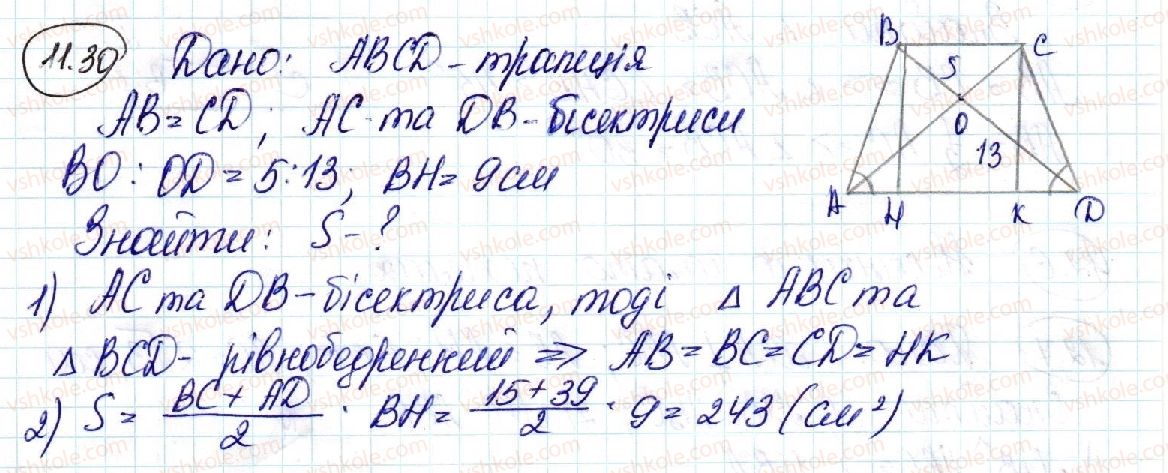 11.30
Дано: ABCD - трапеція
AB = CD; AC та DB - бісектриси
BO : OD = 5 : 13; BH = 9 см
Знайти: S - ?
B C
5
O
13
A H K D
1) AC та DB - бісектриса, тоді △ ABC та
△ BCD - рівнобедренний => AB = BC = CD = HK
2) S = (BC + AD)/2 · BH = (15 + 39)/2 · 9 = 243 (см²)
vshkole.com